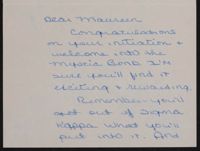 Dear Maureen
Congratulations
on your initiation &
welcome into the
Mystic Bond. I'm
sure you'll find it
exciting & rewarding.
Remember you'll
get out of Sigma
Kappa what you'll
put into it. And